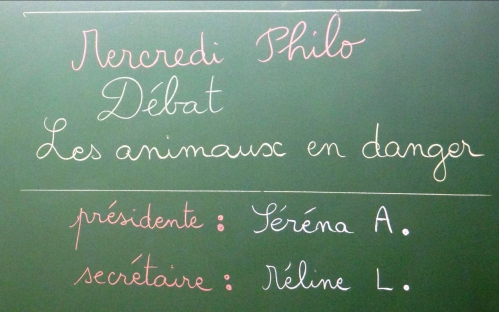 Mercredi Philo
Débat
Les animaux en danger
présidente : Séréna A.
secrétaire : Méline L.